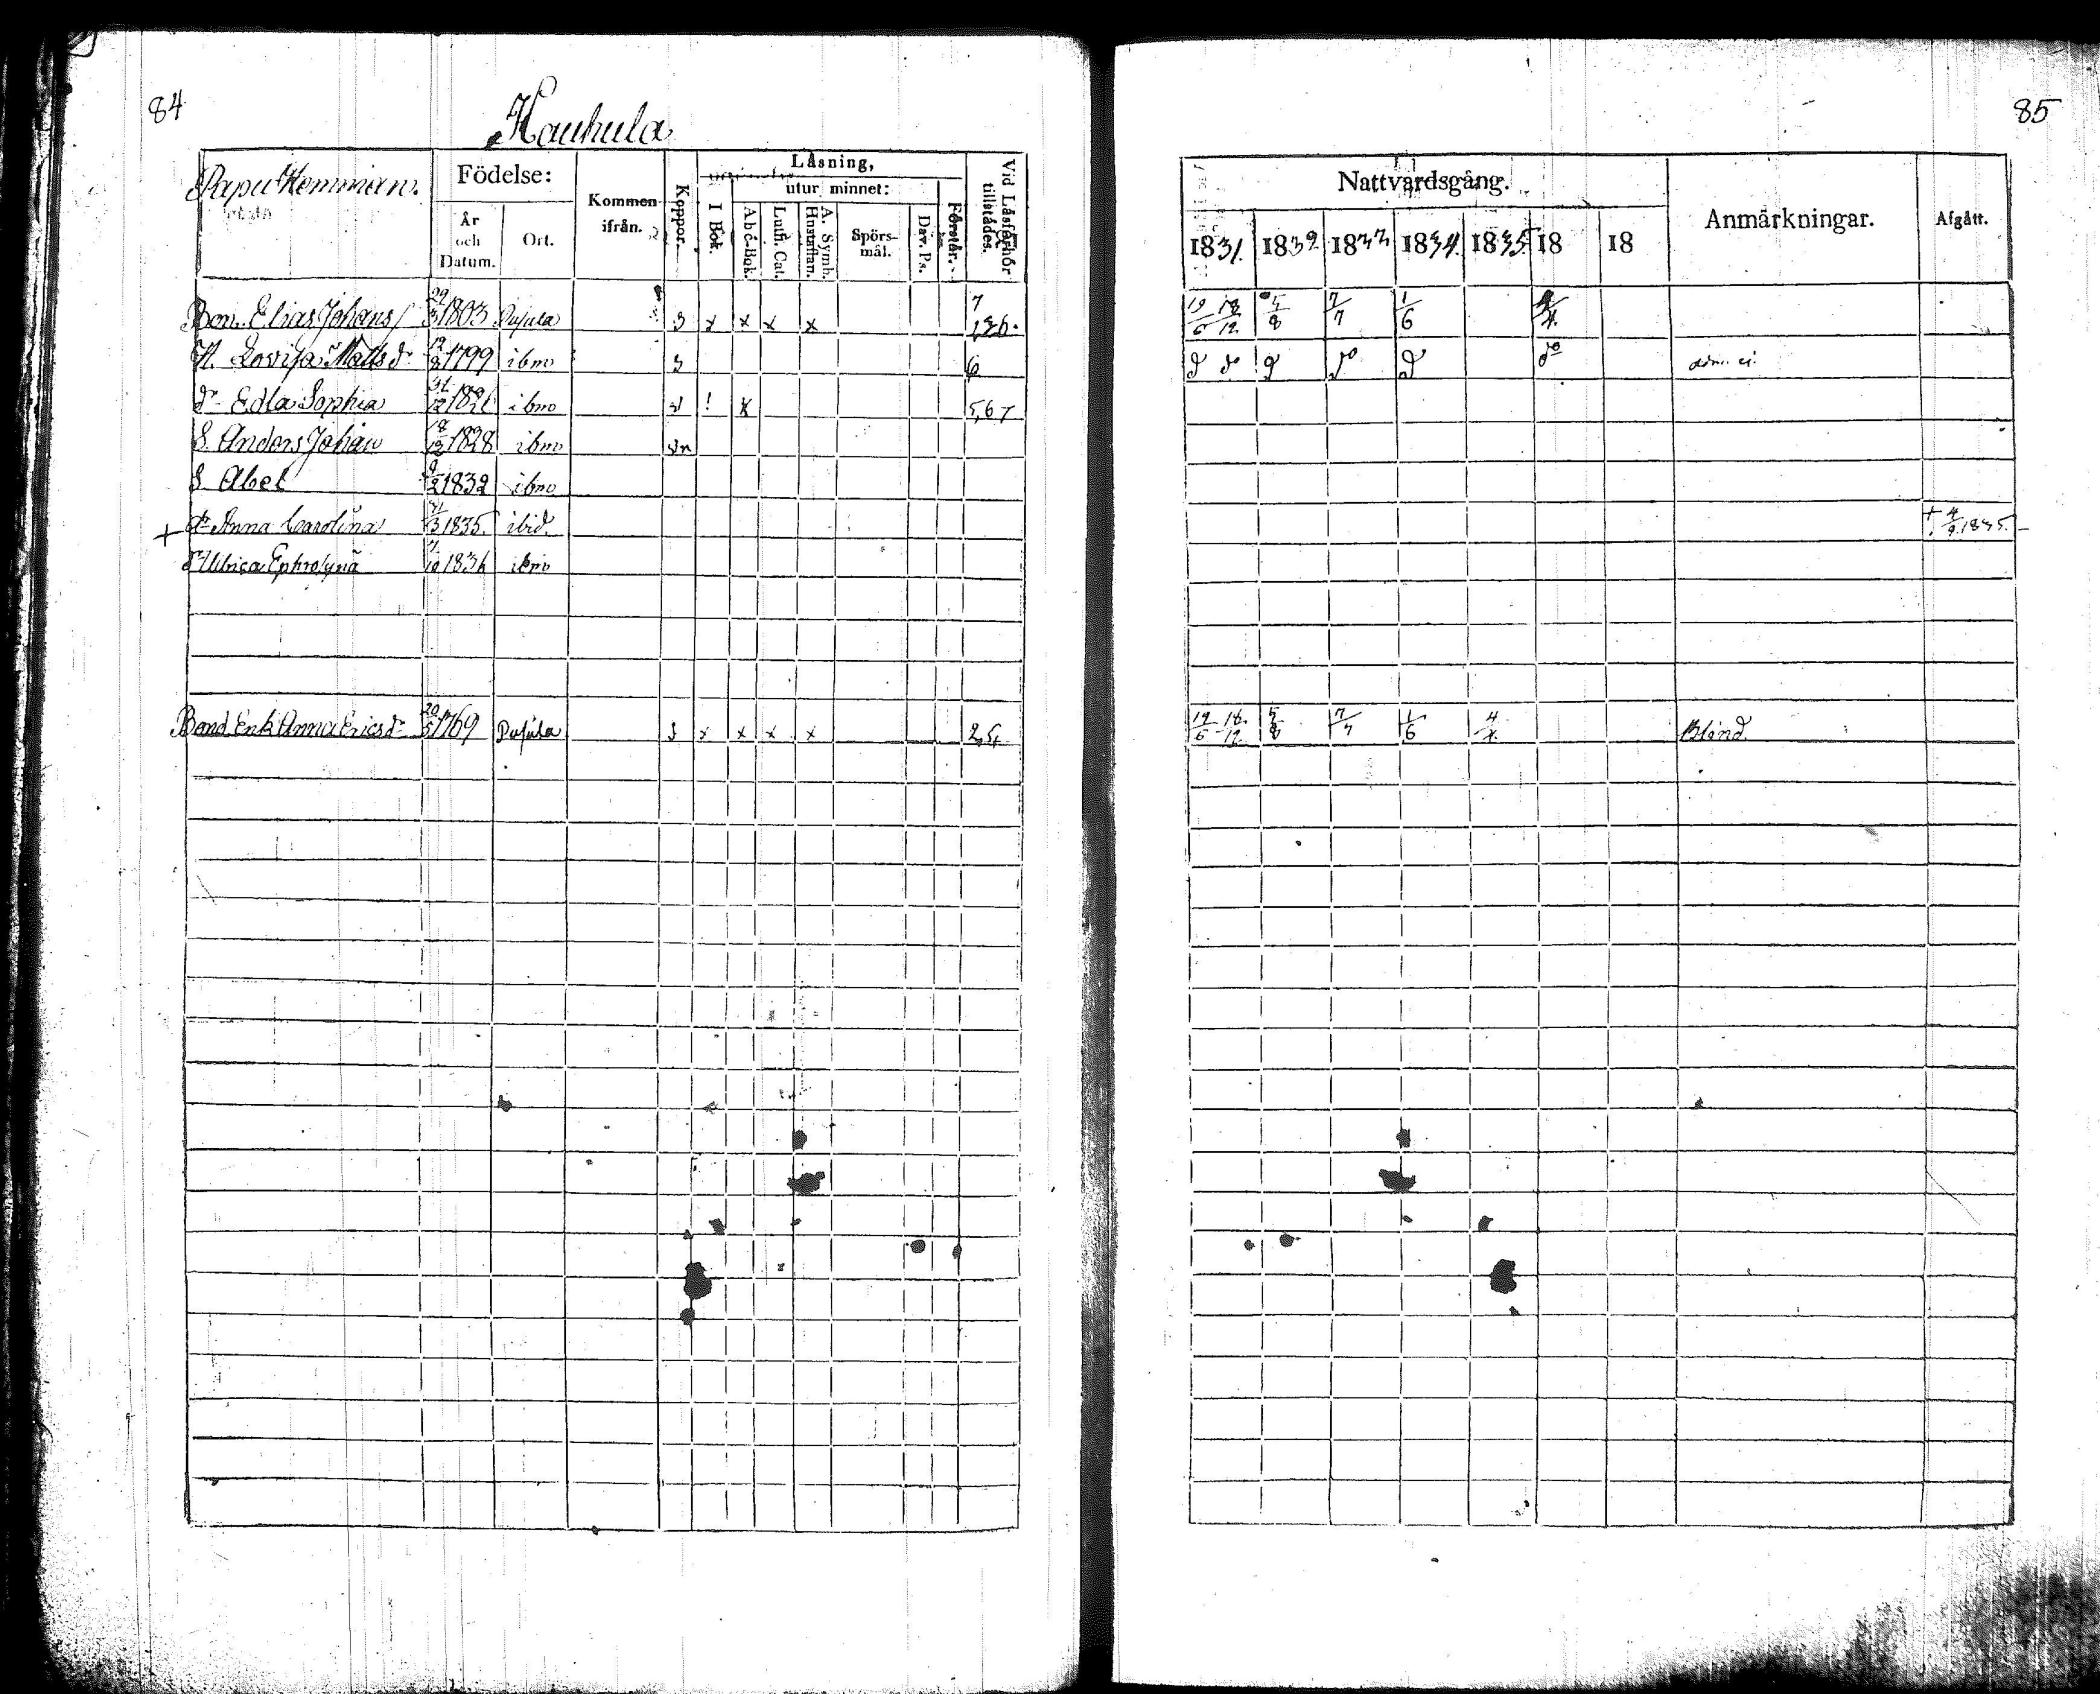 84
Kauhula
Papu Hemman.
Födelse:
År och Datum.
Ort.
Kommen ifrån.
Koppor.
Läsning,
I Bok.
utur minnet:
Abc-Bok.
Luth. Cat.
A. Symb. Hustaflan.
Spörsmål.
Dav. Ps.
Förstår.
Vid Läsförhör tillstädes.
Bon. Elias Johans 29/3 1803 Pusula 3 x x x x 7
H. Lovisa Matts dr 1799 ibm 3 6
dr Edla Sophia 31/12 1821 ibm ! x 5,6 7
S. Anders Johan 18/12 1828 ibm vn
S. Abel 2/2 1832 ibm
+ dr Anna Carolina 1835. ibid.
dr Ulrica 1836 ibm
Bond Enk Anna Erics dr 20/5 1769 Pusula 3 x x x x 2,5,
85
Nattvardsgång.
Anmärkningar.
Afgått.
1831. 1832 1833 1834. 1835. 18 18
19/6 18/12 5/8 7/7 1/6
do
+ 4/9 1835.
19/6 18/12 5/8 7/7 1/6 4/4 Blind.